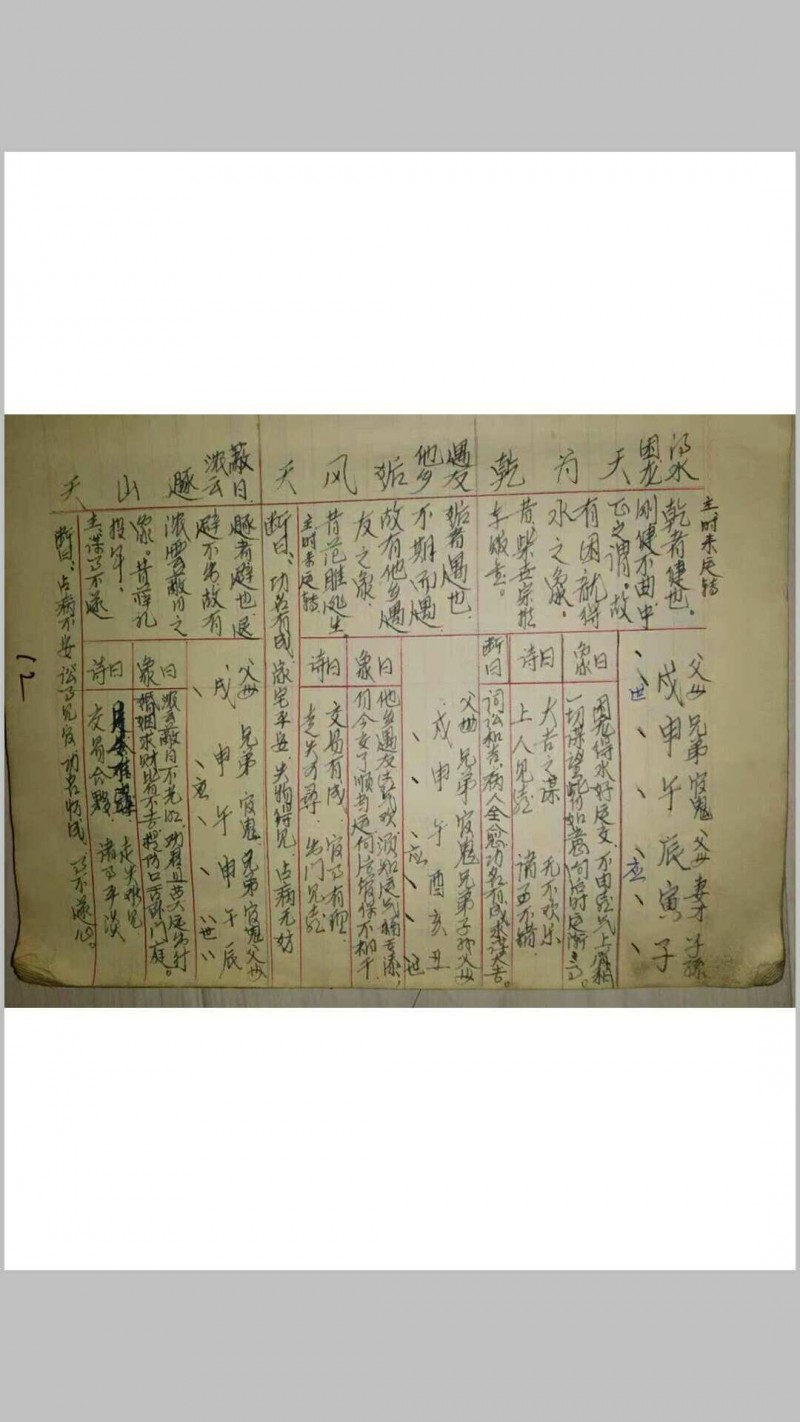 乾为天
困龙
得水
主时来运转
乾者健也。
刚健不曲中
正之谓。故
有困龙得
水之象。
昔柴世宗推
车贩伞。
父母 兄弟 官鬼 父母 妻才 子孫
戌 申 午 辰 寅 子
世 应
象曰
困龙得水好运交 不由喜气上眉稍
一切谋望皆如意 向后时运渐渐高
诗曰
大吉之课 无不欢乐
上人见喜 诸事不错
断曰
词讼和吉 病人全愈 功名有成 求谋大吉。
天风姤
他乡
遇友
姤者遇也
不期而遇
故有他乡遇
友之象
昔范雎逃生
主时来运转
父母 兄弟 官鬼 兄弟 子孙 父母
戌 申 午 酉 亥 丑
应 世
象曰
他乡遇友喜气欢 须知运气福重添
们今交了顺当运 向后管保不相干
诗曰
交易有成 官事有理
走失可尋 出门见喜
断曰、功名有成 家宅平安 失物得见 占病无妨
天山豚
浓云
蔽日
豚者避也 退
避不出 故有
浓雲蔽日之
象。昔薛礼
投军
主谋事不遂
父母 兄弟 官鬼 兄弟 官鬼 父母
戌 申 午 申 午 辰
应 世
象曰
浓雲蔽日不光明 劝君且莫运出行
婚姻求财皆不吉 提防口舌到门庭。
诗曰
交易合夥 走失难见
诸事平淡
断曰、占病不妥 讼事见官 功名勿成 事不遂心。